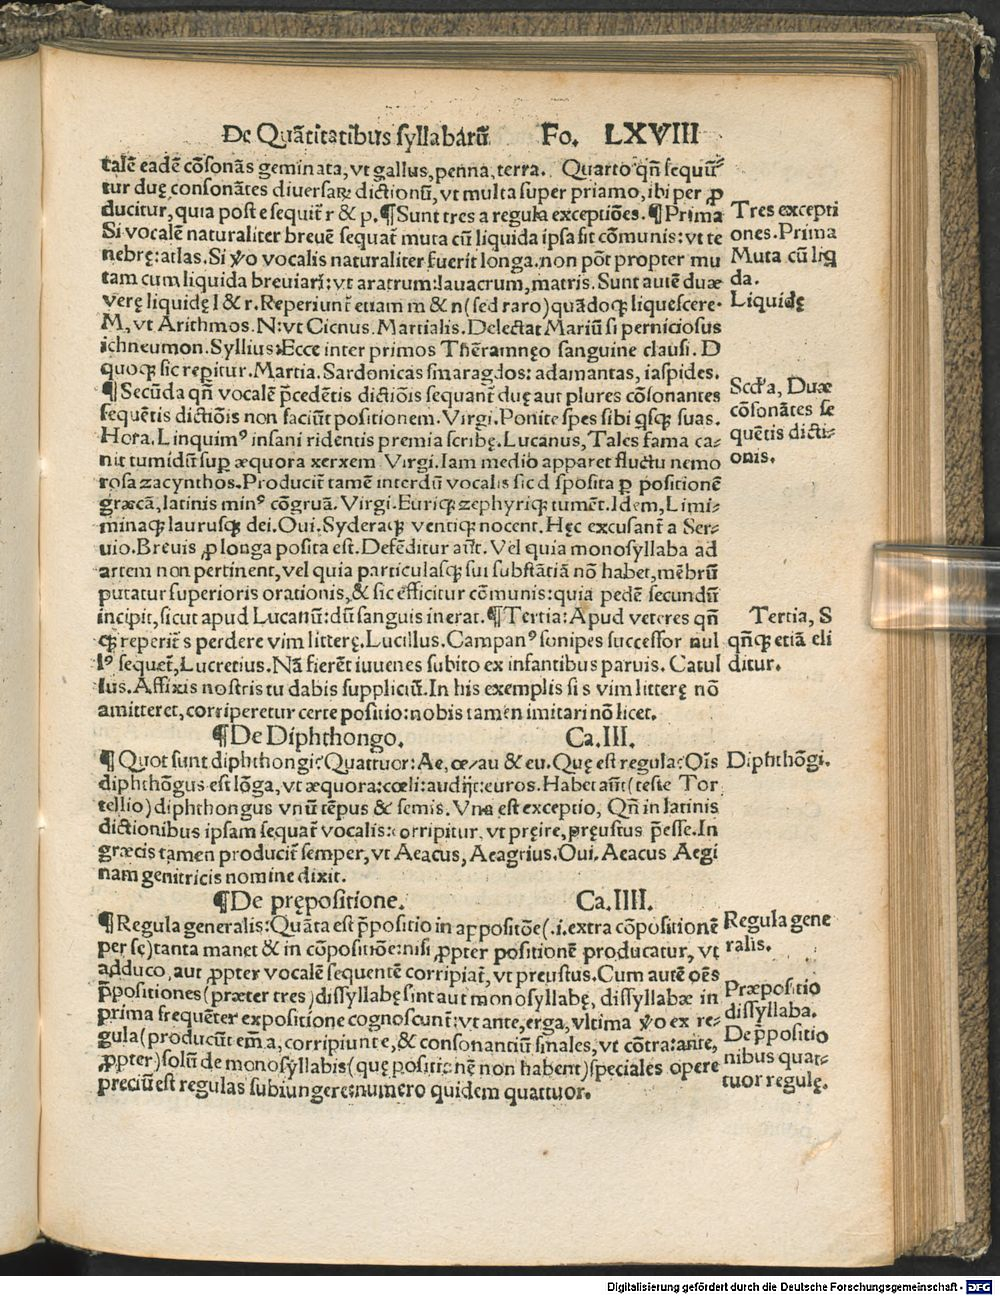 De Quãtitatibus syllabarũ Fo. LXVIII
talẽ eadẽ cõsonãs geminata, vt gallus, penna, terra. Quarto qñ sequũ-
tur duę consonãtes diuersarꝫ dictionũ, vt multa super priamo, ibi per ꝓ
ducitur, quia post e sequit̃ r & p. ¶ Sunt tres a regula exceptiões. ¶ Prima
Si vocalẽ naturaliter breuẽ sequat̃ muta cũ liquida ipsa fit cõmunis: vt te
nebrę: atlas. Si ṽo vocalis naturaliter fuerit longa. non põt propter mu
tam cum liquida breuiari: vt aratrum: lauacrum, matris. Sunt autẽ duæ
verę liquidę l & r. Reperiunt̃ etiam m & n (sed raro) quãdoqꝫ liquescere.
M, vt Arithmos. N: vt Cicnus. Martialis. Delectat Mariũ si perniciosus
ichneumon. Syllius: Ecce inter primos Therãmnęo sanguine clausi. D
quoqꝫ sic repitur. Martia. Sardonicas smaragdos: adamantas, iaspides.
¶ Secũda qñ vocalẽ p̃cedẽtis dictiõis sequant̃ duę aut plures cõsonantes
sequẽtis dictiõis non faciũt positionem. Virgi. Ponite spes sibi qꝰsqꝫ suas.
Hora. Linquimꝰ insani ridentis premia scribę. Lucanus, Tales fama ca-
nit tumidũ suꝑ æquora xerxem Virgi. Iam medio apparet fluctu nemo
rosa zacynthos. Producit̃ tamẽ interdũ vocalis sic d sposita ꝑ positionẽ
græcã, latinis minꝰ cõgruã. Virgi. Euriqꝫ zephyriqꝫ tumẽt. Idem, Limi-
minaqꝫ laurusqꝫ dei. Oui. Syderaqꝫ ventiqꝫ nocent. Hęc excusant̃ a Ser-
uio. Breuis ꝓ longa posita est. Defẽditur aũt. Vel quia monosyllaba ad
artem non pertinent, vel quia particulasqꝫ sui substãtiã nõ habet, mẽbrũ
putatur superioris orationis, & sic efficitur cõmunis: quia pedẽ secundũ
incipit, sicut apud Lucanũ: dũ sanguis inerat. ¶ Tertia: Apud veteres qñ
qꝫ reperit̃ s perdere vim litterę. Lucillus. Campanꝰ sonipes successor nul
lꝰ sequet̃, Lucretius. Nã fierẽt iuuenes subito ex infantibus paruis. Catul
lus. Affixis nostris tu dabis suppliciũ. In his exemplis si s vim litterę nõ
amitteret, corriperetur certe positio: nobis tamen imitari nõ licet.
¶ De Diphthongo. Ca. III.
¶ Quot sunt diphthongi? Quattuor: Ae, œ, au & eu. Quę est regula? Oĩs
diphthõgus est lõga, vt æquora: cœli: audijt: euros. Habet aũt (teste Tor
tellio) diphthongus vnũ tẽpus & semis. Vna est exceptio, Qñ in latinis
dictionibus ipsam sequat̃ vocalis: corripitur, vt pręire, pręustus p̃esse. In
græcis tamen producit̃ semper, vt Aeacus, Aeagrius. Oui. Aeacus Aegi
nam genitricis nomine dixit.
¶ De prępositione. Ca. IIII.
¶ Regula generalis: Quãta est p̃positio in appositõe (.i. extra cõpositionẽ
per sę) tanta manet & in cõpositiõe: nisi ꝓpter positionẽ producatur, vt
adduco, aut ꝓpter vocalẽ sequentẽ corripiat̃, vt preustus. Cum autẽ oẽs
p̃positiones (præter tres) dissyllabę sint aut monosyllabę, dissyllabæ in
prima frequẽter expositione cognoscunt̃: vt ante, erga, vltima ṽo ex re-
gula (producũt em̃ a, corripiunt e, & consonantiũ finales, vt cõtra: ante,
ꝓpter) solũ de monosyllabis (quę positionẽ non habent) speciales opere
preciũ est regulas subiungere: numero quidem quattuor.
Tres excepti
ones. Prima
Muta cũ liq
da.
Liquidę
Scd'a, Duæ
cõsonãtes se
quẽtis dicti-
onis.
Tertia, S
qñqꝫ etiã eli
ditur.
Diphthõgi.
Regula gene
ralis.
Præpositio
dissyllaba.
De p̃positio
nibus quat-
tuor regulę.
Digitalisierung gefördert durch die Deutsche Forschungsgemeinschaft - DFG